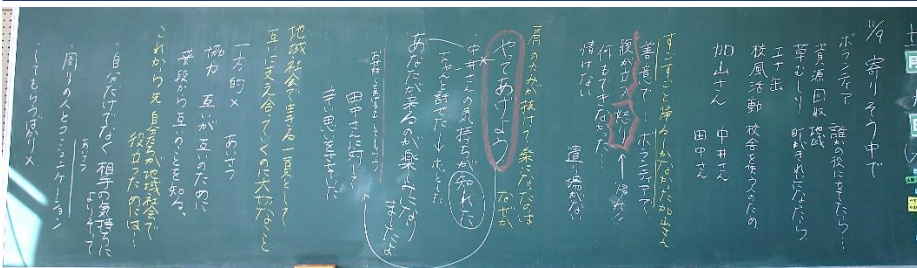 11/9 寄りそう中で
ボランティア 誰かの役に立てたら…
資源回収 地域
草むしり 町がきれいになったら
エナ缶
校風活動 校舎を使う人のため
加山さん 中井さん
田中さん
すごすごと帰るしかなかった加山さん
善意で… ボランティアで
腹が立つ 怒り
何もできなかった…
情けない
肩の力が抜けて楽になったのは
なぜか
やってあげよう
中井さんの気持ちが知れた
ちゃんと話せた → ホッとした
あなたが来るのが楽しみになり
ましたよ
田中さんに対して
辛い思いをさせていた
地域社会で生きる一員として
互いに支え合っていくのに大切なこと
一方的× あいさつ
協力 互いが互いのために
普段から互いのことを知る。
これから先 自分が地域社会で
役立つためには!
・自分だけでなく 相手の気持ちに
よりそって
・周りの人とコミュニケーション
あいさつ
・してもらうばかり×